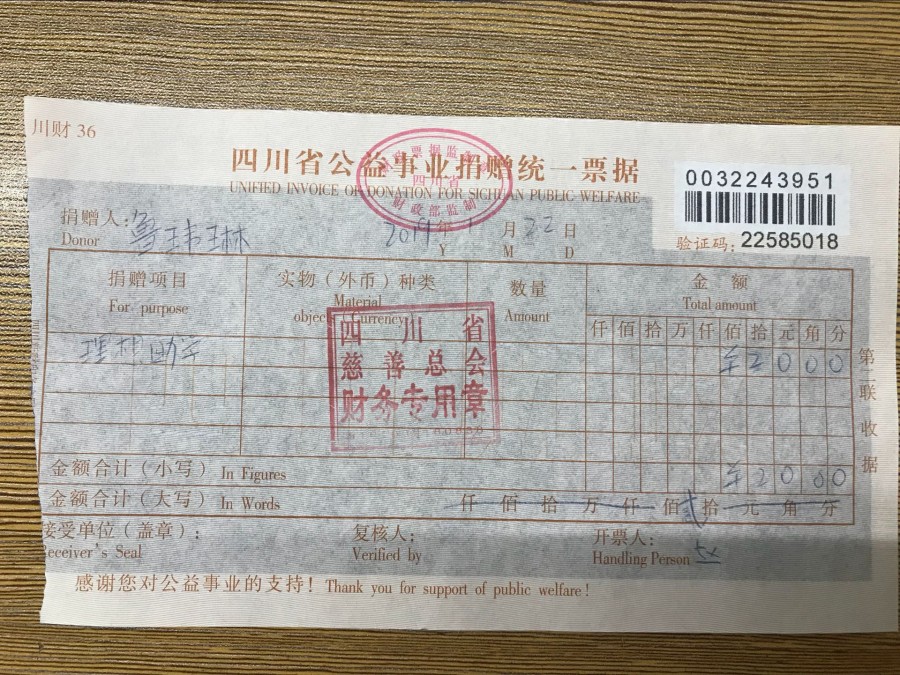 川财 36
四川省公益事业捐赠统一票据
UNIFIED INVOICE OF DONATION FOR SICHUAN PUBLIC WELFARE
票据监制
四川省
财政部监制
0032243951
验证码：22585018
捐赠人：鲁玮琳 2019年1月22日
Donor Y M D
捐赠项目 实物（外币）种类 数量 金额
For purpose Material object Currency Amount Total amount
仟佰拾万仟佰拾元角分
¥2000
四川省
慈善总会
财务专用章
金额合计（小写） In Figures ¥2000
金额合计（大写） In Words 仟佰拾万仟佰贰拾元角分
接受单位（盖章）： 复核人： 开票人：
Receiver's Seal Verified by Handling Person
感谢您对公益事业的支持！Thank you for support of public welfare!
第二联收据